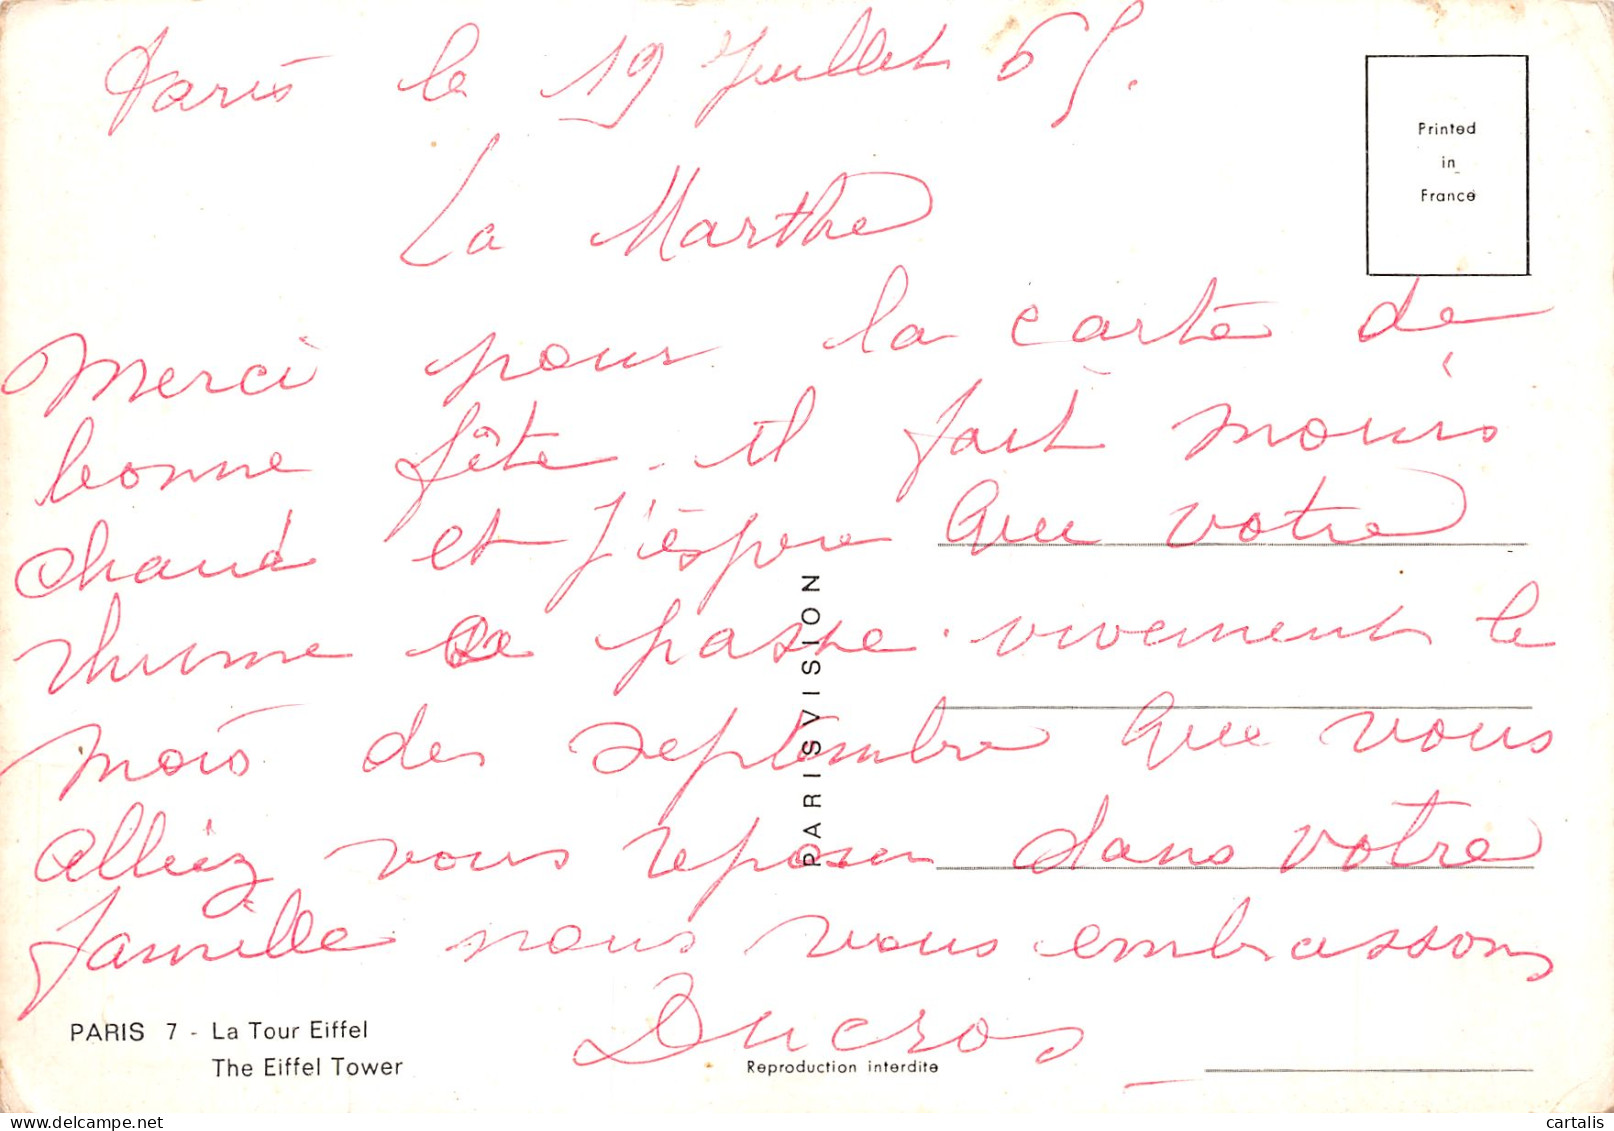 Paris le 19 Juillet 65.
La Marthe
Merci pour la carte de
bonne fête. il fait moins
chaud et j'éspere que votre
rhume se passe. vivement le
mois des septembre que vous
alliez vous reposer dans votre
famille nous vous embrassons
Ducros
Printed
in
France
PARIS VISION
PARIS 7 - La Tour Eiffel
The Eiffel Tower
Reproduction interdite
cartalis